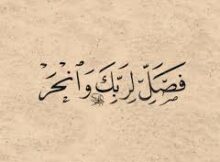 فَصَلِّ لِرَبِّكَ وَٱنْحَرْ